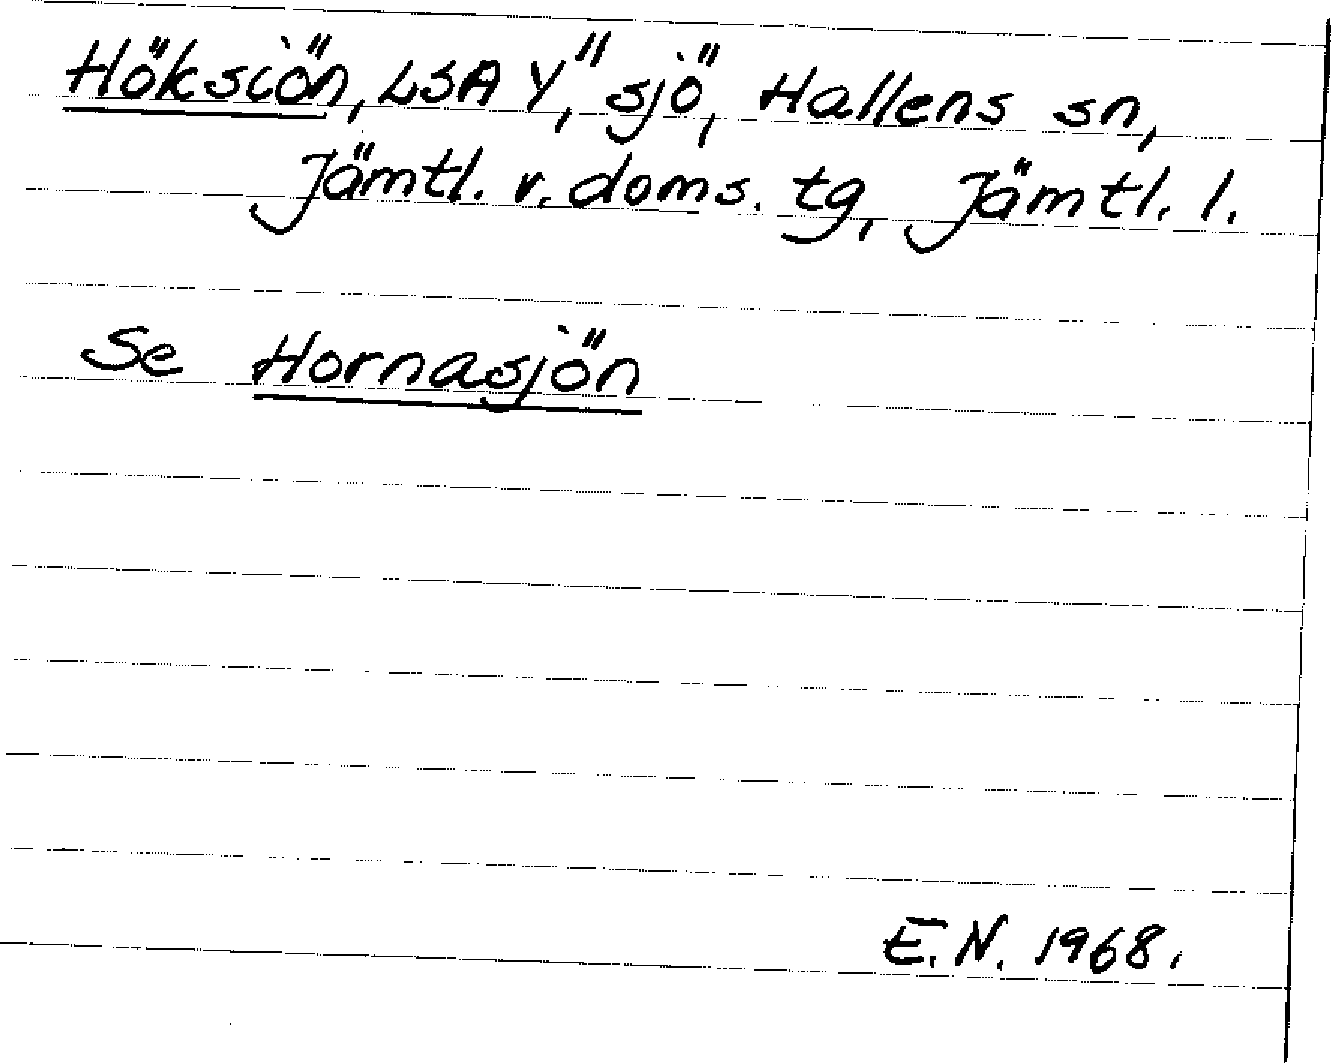 Höksiön, LSA Y", sjö, Hallens sn,
Jämtl. v. doms. tg, Jämtl. l.
Se Hornasjön
E.N. 1968.